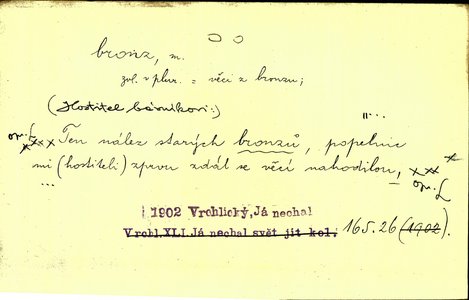 bronz, m.
zvl. v plur. = věci z bronzu;
(Hostitel básníkovi:)
Ten nález starých bronzů, popelnic
mi (hostiteli) zprvu zdál se věcí nahodilou,
...
1902 Vrchlický, Já nechal
Vrchl. XLI. Já nechal svět jít kol. 165.26 (1902).